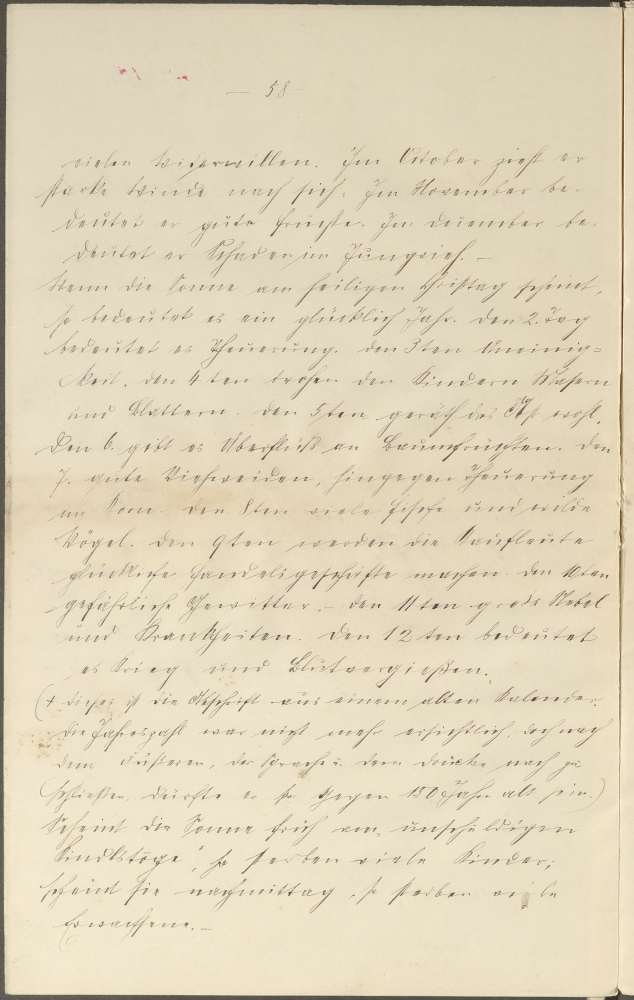 — 58 —
vielen Widerwillen. Im October zieht er
starke Winde nach sich. Im November be-
deutet er gute Früchte. Im December be-
deutet er Schaden im Jungvieh. —
Wenn die Sonne am heiligen Christtag scheint,
so bedeutet es ein glücklich Jahr. Den 2. Tag
bedeutet es Theuerung. Den 3ten Uneinig-
keit. Den 4ten drohen den Kindern Masern
und Blattern. Den 5ten geräth das Obst wohl.
Den 6. gibt es Überfluß an Baumfrüchten. Den
7. gute Viehweiden, hingegen Theuerung
an Korn. Den 8ten viele Fische und wilde
Vögel. Den 9ten werden die Kaufleute
glückliche Handelsgeschäfte machen. Den 10ten
gefährliche Gewitter. — Den 11ten große Nebel
und Krankheiten. Den 12ten bedeutet
es Krieg und Blutvergießen.
(+ dieses ist die Abschrift aus einem alten Kalender.
Die Jahreszahl war nicht mehr ersichtlich, doch nach
dem Äußeren, der Sprache u. dem Drucke nach zu
schließen, dürfte er so gegen 150 Jahr alt sein.)
Scheint die Sonne früh am „unschuldigen
Kindlstage“, so sterben viele Kinder;
scheint sie nachmittag, so sterben viele
Erwachsene. —